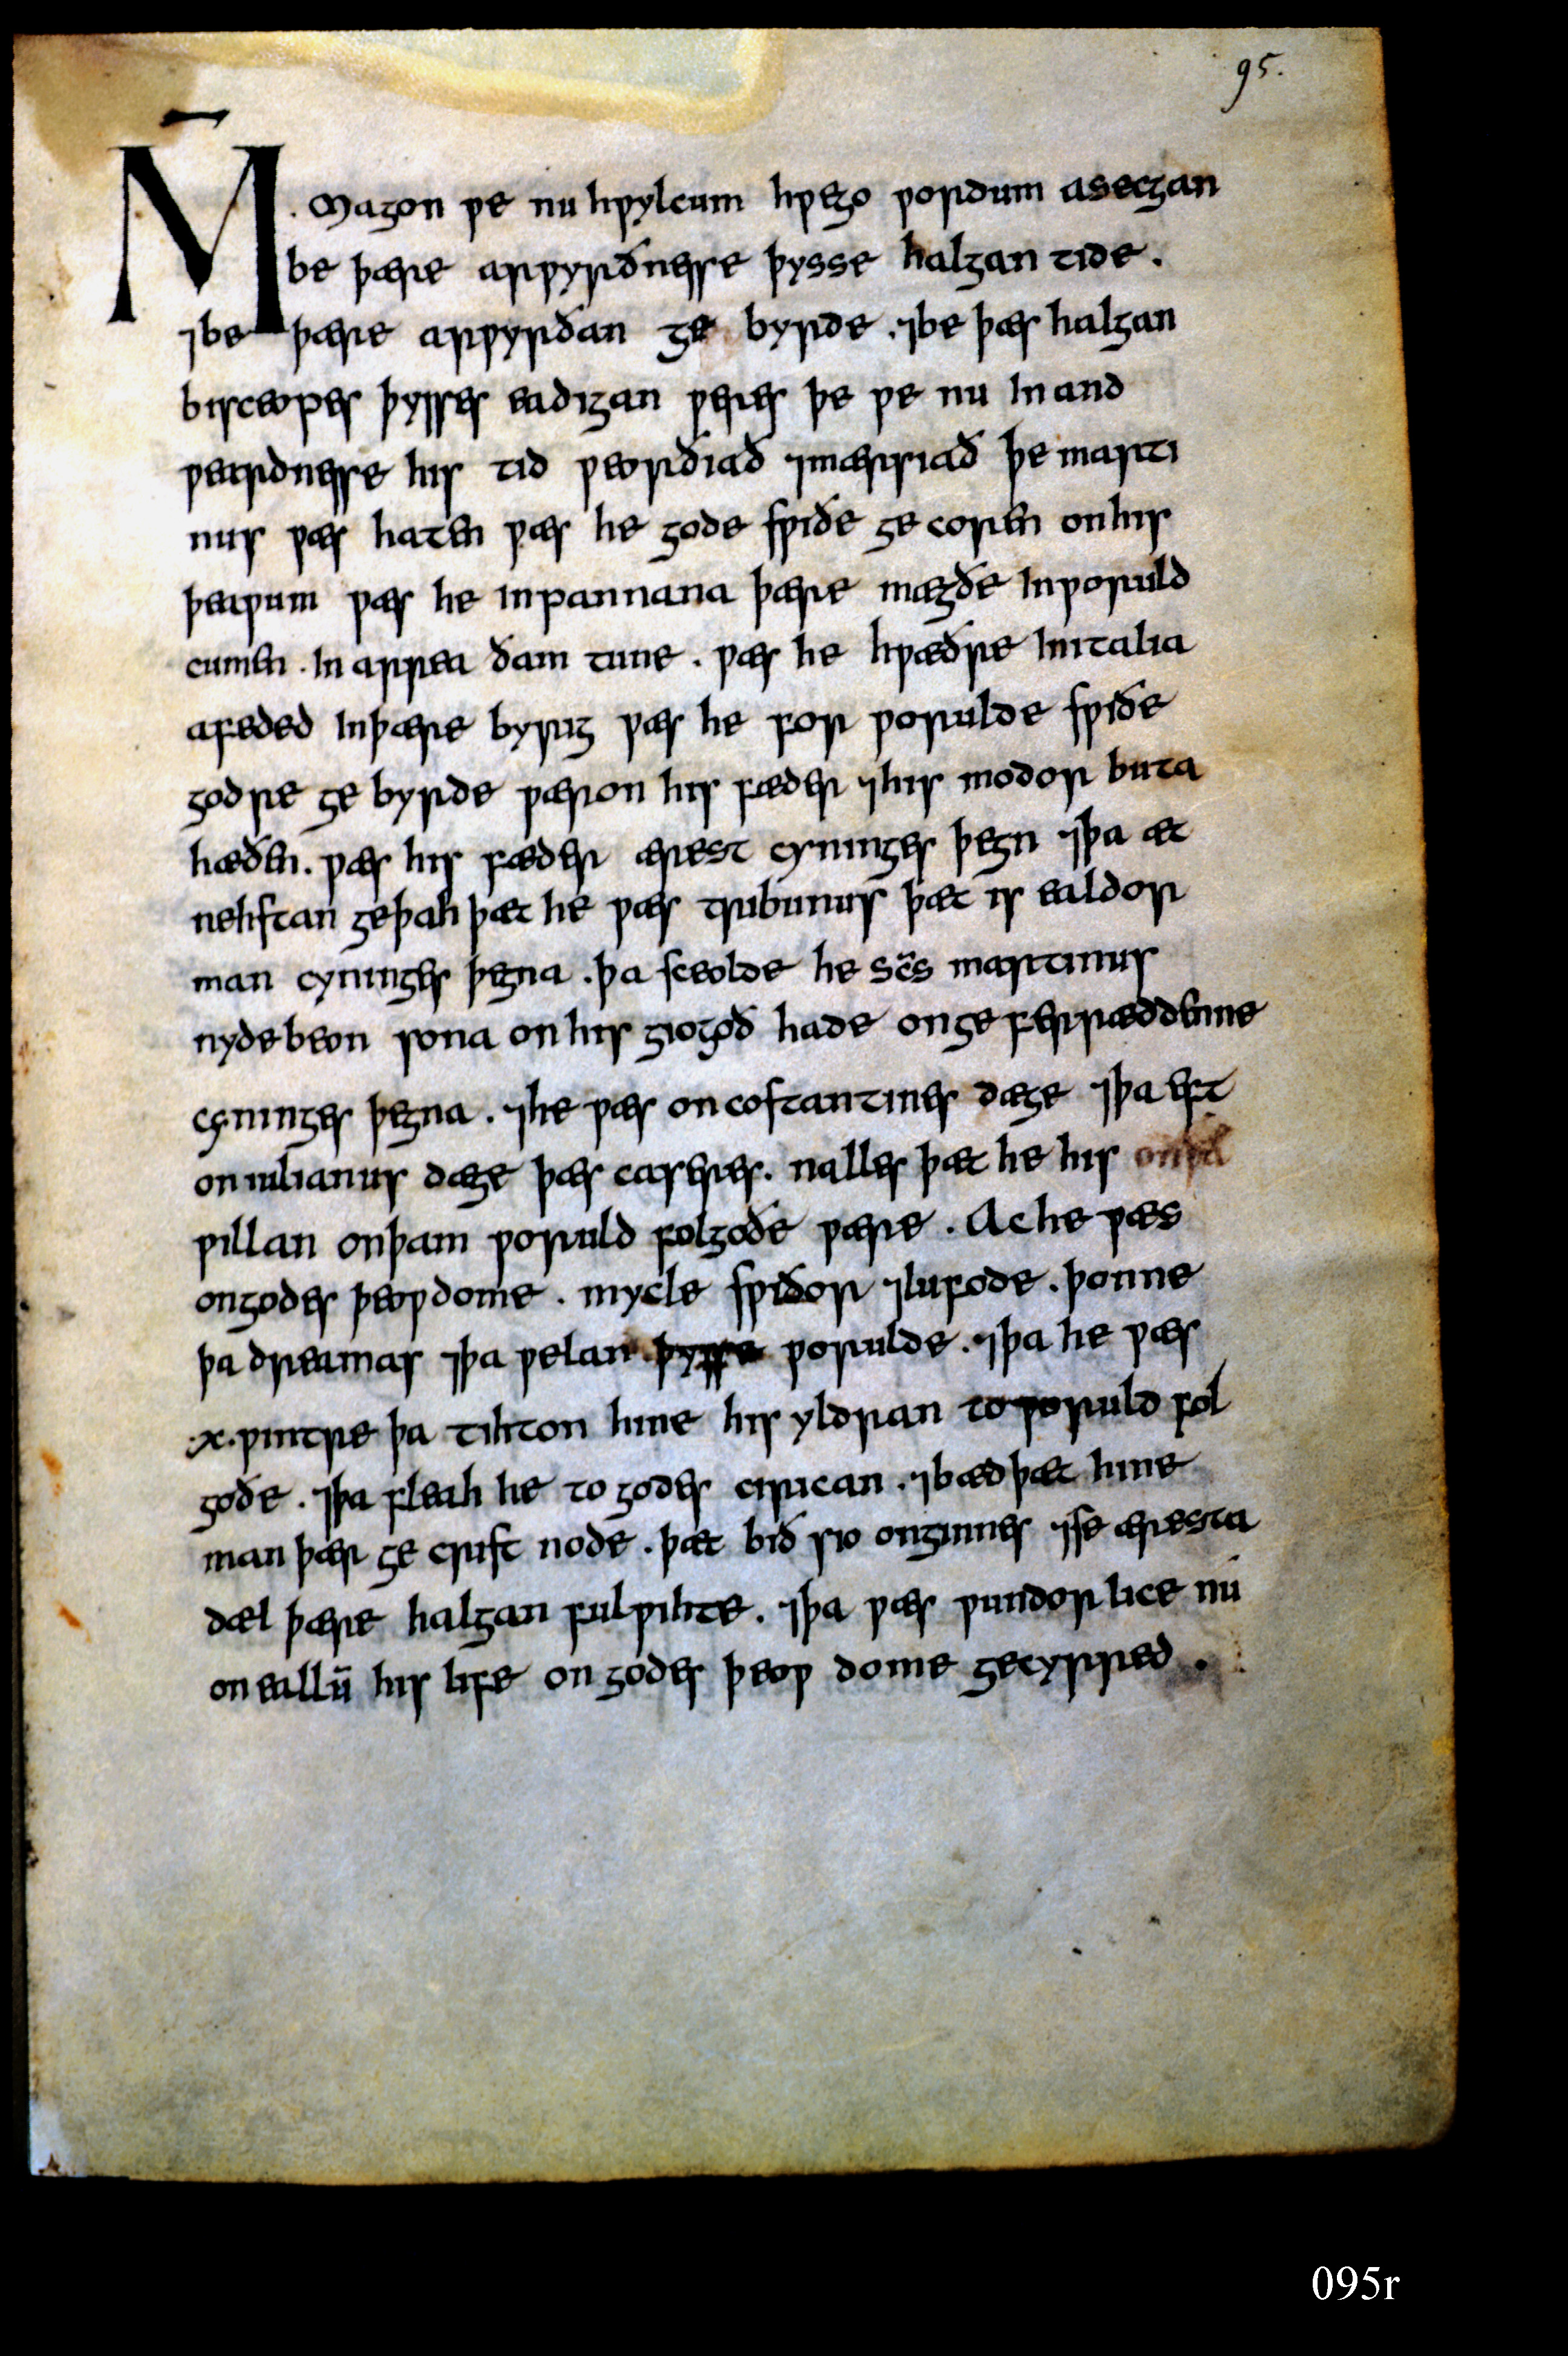 95.
M̄. Magon ƿe nu hƿylcum hƿego ƿordum asecgan
be þære arƿyrðnesse þysse halgan tide.
⁊be þære arƿyrðan ge byrde. ⁊be þæs halgan
bisceopes þysses eadigan ƿeres þe ƿe nu In and
ƿeardnesse his tid ƿeorðiað ⁊mærsiað þe marti
nus ƿæs haten ƿæs he gode sƿiðe ge coren on his
þeaƿum ƿæs he In pannana þære mægðe In ƿoruld
cumen. In arrea ðam tune. ƿæs he hƿæðre In italia
afeded In þære byrig ƿæs he for ƿorulde sƿiðe
godre ge byrde ƿæron his fæder ⁊his modor buta
hæðen. ƿæs his fæder ærest cyninges þegn ⁊þa æt
nehstan geþah þæt he ƿæs tribunus þæt is ealdor
man cyninges þegna. þa sceolde he sc̄s martinus
nyde beon sona on his giogoð hade on ge ferræddenne
cyninges þegna. ⁊he ƿæs on costantines dæge ⁊þa eft
on iulianus dæge þæs caseres. nalles þæt he his
ƿillan on þam ƿoruld folgoðe ƿære. Ac he ƿæs
on godes þeoƿdome. mycle sƿiðor ⁊lufode. þonne
þa dreamas ⁊þa ƿelan þysse ƿorulde. ⁊þa he ƿæs
.x. ƿintre þa tihton hine his yldran to ƿoruld fol
goðe. ⁊þa fleah he to godes cirican. ⁊bæd þæt hine
man þær ge crist node. þæt bið sio onginnes ⁊se æresta
dæl þære halgan fulƿihte. ⁊þa ƿæs ƿundor lice nu
on eallū his life on godes þeoƿ dome gecyrred.
095r